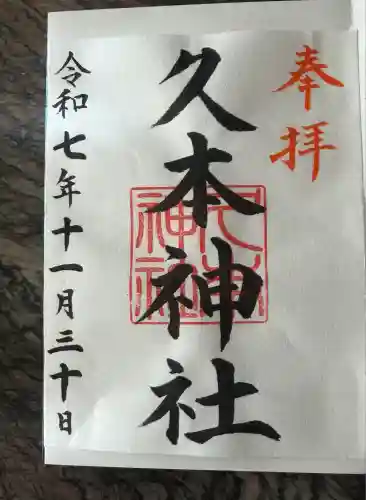 奉拝
久本神社
久本神社
令和七年十一月三十日